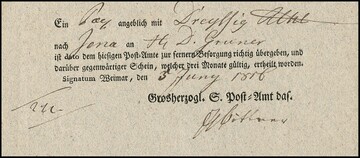 Ein Pax angeblich mit Dreyßig Rthl
nach Jena an H. D. Gruner
ist dato dem hiesigen Post-Amte zur fernern Besorgung richtig übergeben, und
darüber gegenwärtiger Schein, welcher drei Monate gültig, ertheilt worden.
Signatum Weimar, den 3 Juny 1816
Grosherzogl. S. Post-Amt das.